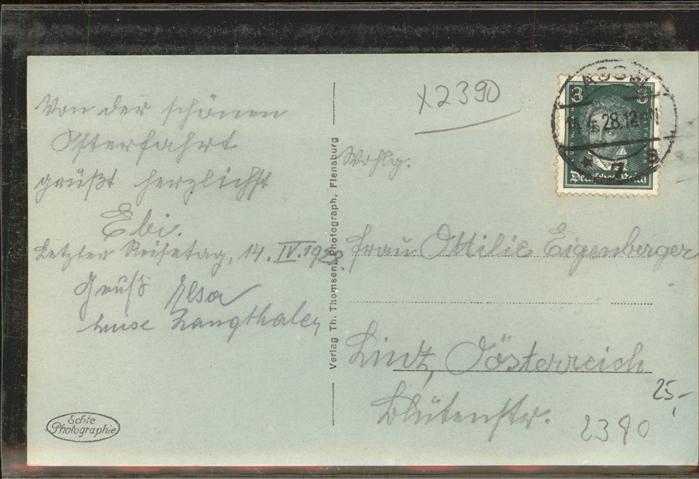 Von der schönen
Osterfahrt
grüßt herzlichst
Ebi.
Letzter Reisetag, 14. IV. 1928.
Gruß Elsa
Luise Langthaler
Echte
Photographie
Verlag Th. Thomsen, Photograph, Flensburg
x2390
3 3
Deutsches Reich
28.12
Wohlg.
Frau Ottilie Eigenberger
Linz, Oösterreich
Blütenstr.
25,-
2390